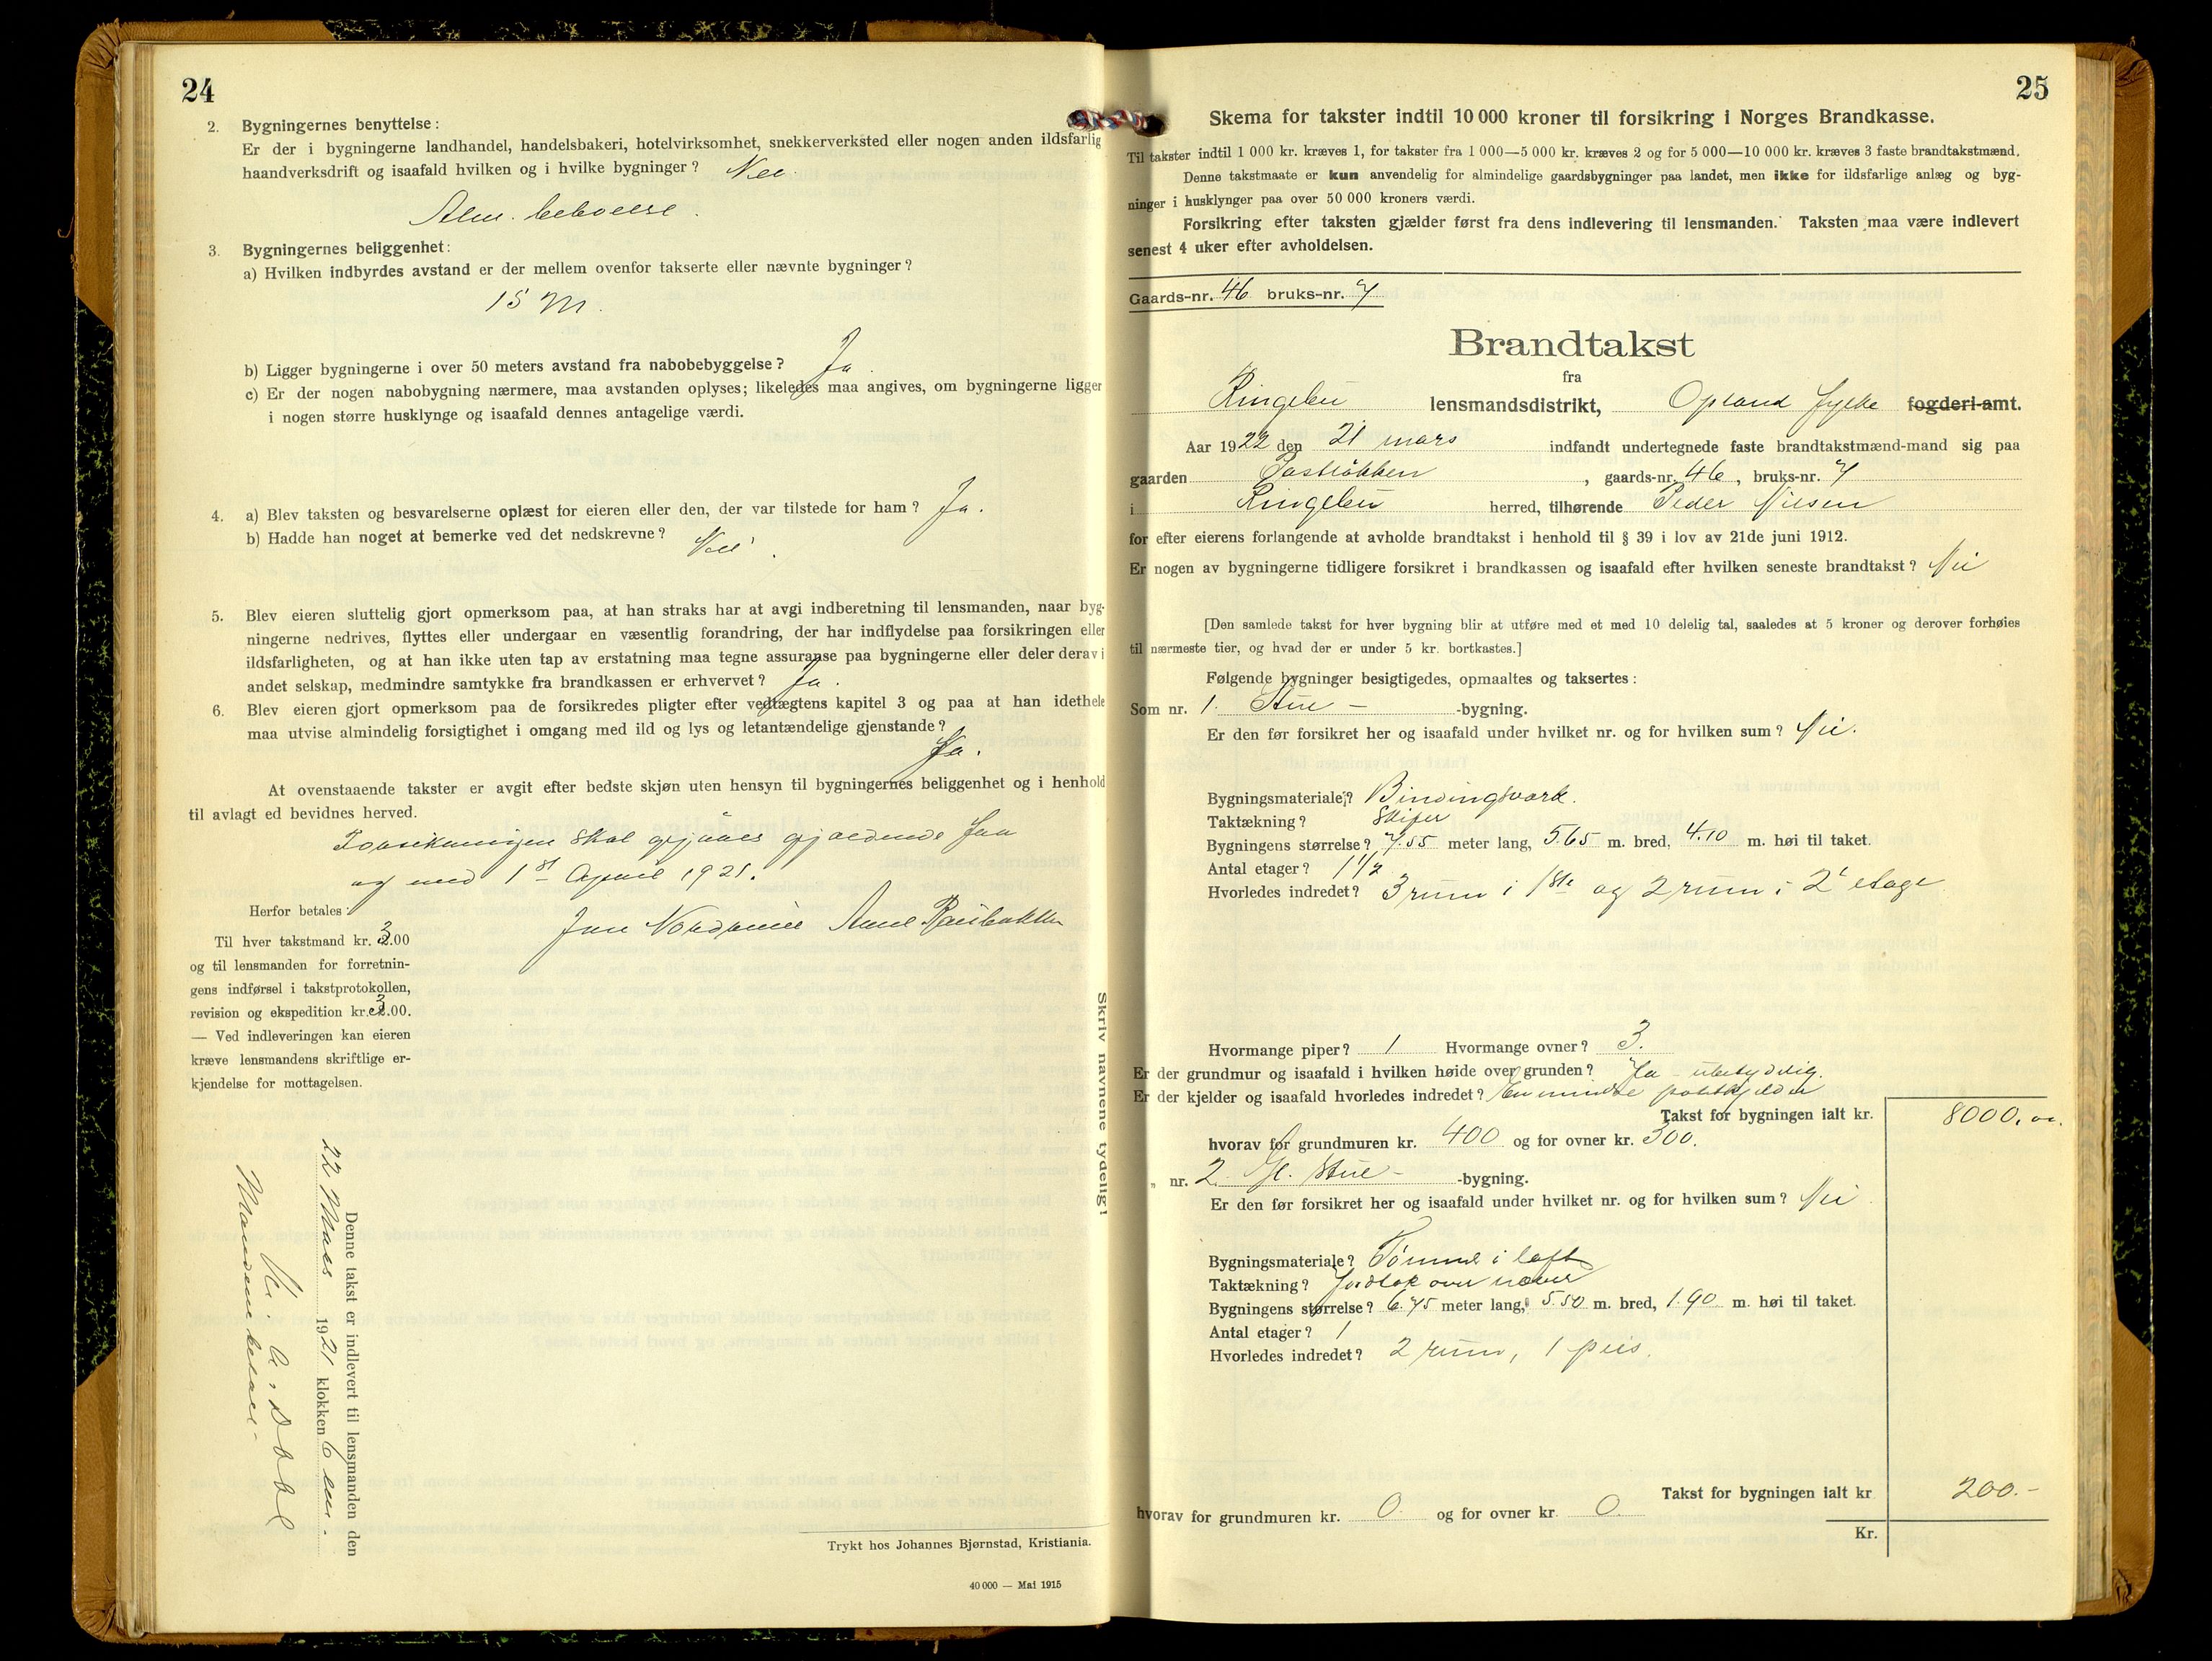 24
2. Bygningernes benyttelse:
Er der i bygningerne landhandel, handelsbakeri, hotelvirksomhet, snekkerverksted eller nogen anden ildsfarlig
haandverksdrift og isaafald hvilken og i hvilke bygninger? Nei.
Alm. beboelse.
3. Bygningernes beliggenhet:
a) Hvilken indbyrdes avstand er der mellem ovenfor takserte eller nævnte bygninger?
15 M.
b) Ligger bygningerne i over 50 meters avstand fra nabobebyggelse? Ja.
c) Er der nogen nabobygning nærmere, maa avstanden oplyses; likeledes maa angives, om bygningerne ligger
i nogen større husklynge og isaafald dennes antagelige værdi.
4. a) Blev taksten og besvarelserne oplæst for eieren eller den, der var tilstede for ham? Ja.
b) Hadde han noget at bemerke ved det nedskrevne? Nei.
5. Blev eieren sluttelig gjort opmerksom paa, at han straks har at avgi indberetning til lensmanden, naar byg-
ningerne nedrives, flyttes eller undergaar en væsentlig forandring, der har indflydelse paa forsikringen eller
ildsfarligheten, og at han ikke uten tap av erstatning maa tegne assuranse paa bygningerne eller deler derav i
andet selskap, medmindre samtykke fra brandkassen er erhvervet? Ja.
6. Blev eieren gjort opmerksom paa de forsikredes pligter efter vedtægtens kapitel 3 og paa at han idethele
maa utvise almindelig forsigtighet i omgang med ild og lys og letantændelige gjenstande?
Ja.
At ovenstaaende takster er avgit efter bedste skjøn uten hensyn til bygningernes beliggenhet og i henhold
til avlagt ed bevidnes herved.
Forsikringen skal gjøres gjældende fra
og med 1st April 1921.
Herfor betales:
Til hver takstmand kr. 3.00
og til lensmanden for forretnin-
gens indførsel i takstprotokollen,
revision og ekspedition kr. 3.00.
— Ved indleveringen kan eieren
kræve lensmandens skriftlige er-
kjendelse for mottagelsen.
Skriv navnene tydelig!
Denne takst er indlevert til lensmanden den
22 Mars 1921 klokken 6 em.
Trykt hos Johannes Bjørnstad, Kristiania.
40 000 — Mai 1915
25
Skema for takster indtil 10 000 kroner til forsikring i Norges Brandkasse.
Til takster indtil 1 000 kr. kræves 1, for takster fra 1 000—5 000 kr. kræves 2 og for 5 000—10 000 kr. kræves 3 faste brandtakstmænd.
Denne takstmaate er kun anvendelig for almindelige gaardsbygninger paa landet, men ikke for ildsfarlige anlæg og byg-
ninger i husklynger paa over 50 000 kroners værdi.
Forsikring efter taksten gjælder først fra dens indlevering til lensmanden. Taksten maa være indlevert
senest 4 uker efter avholdelsen.
Gaards-nr. 46 bruks-nr. 7
Brandtakst
fra
Ringebu lensmandsdistrikt, Opland fylke fogderi-amt.
Aar 1922 den 21 mars indfandt undertegnede faste brandtakstmænd-mand sig paa
gaarden , gaards-nr. 46, bruks-nr. 7
i Ringebu herred, tilhørende Peder Nilsen
for efter eierens forlangende at avholde brandtakst i henhold til § 39 i lov av 21de juni 1912.
Er nogen av bygningerne tidligere forsikret i brandkassen og isaafald efter hvilken seneste brandtakst? Nei
[Den samlede takst for hver bygning blir at utføre med et med 10 delelig tal, saaledes at 5 kroner og derover forhøies
til nærmeste tier, og hvad der er under 5 kr. bortkastes.]
Følgende bygninger besigtigedes, opmaaltes og taksertes:
Som nr. 1. Stue -bygning.
Er den før forsikret her og isaafald under hvilket nr. og for hvilken sum? Nei.
Bygningsmateriale? Bindingsverk.
Taktækning? Skifer
Bygningens størrelse? 7.55 meter lang, 5.65 m. bred, 4.10 m. høi til taket.
Antal etager? 1 1/2
Hvorledes indredet? 3 rum i 1ste og 2 rum i 2' etage
Hvormange piper? 1 Hvormange ovner? 3.
Er der grundmur og isaafald i hvilken høide over grunden? Ja - ubetydelig.
Er der kjelder og isaafald hvorledes indredet? En mindre potetkjelder
Takst for bygningen ialt kr. 8000.00.
hvorav for grundmuren kr. 400 og for ovner kr. 300.
„ nr. 2. Gl. Stue -bygning.
Er den før forsikret her og isaafald under hvilket nr. og for hvilken sum? Nei
Bygningsmateriale? Tømmer i laft
Taktækning? Jordtak over næver
Bygningens størrelse? 6.75 meter lang, 5.50 m. bred, 1.90 m. høi til taket.
Antal etager? 1
Hvorledes indredet? 2 rum, 1 peis.
Takst for bygningen ialt kr 200.-
hvorav for grundmuren kr. 0. og for ovner kr. 0.
Kr.